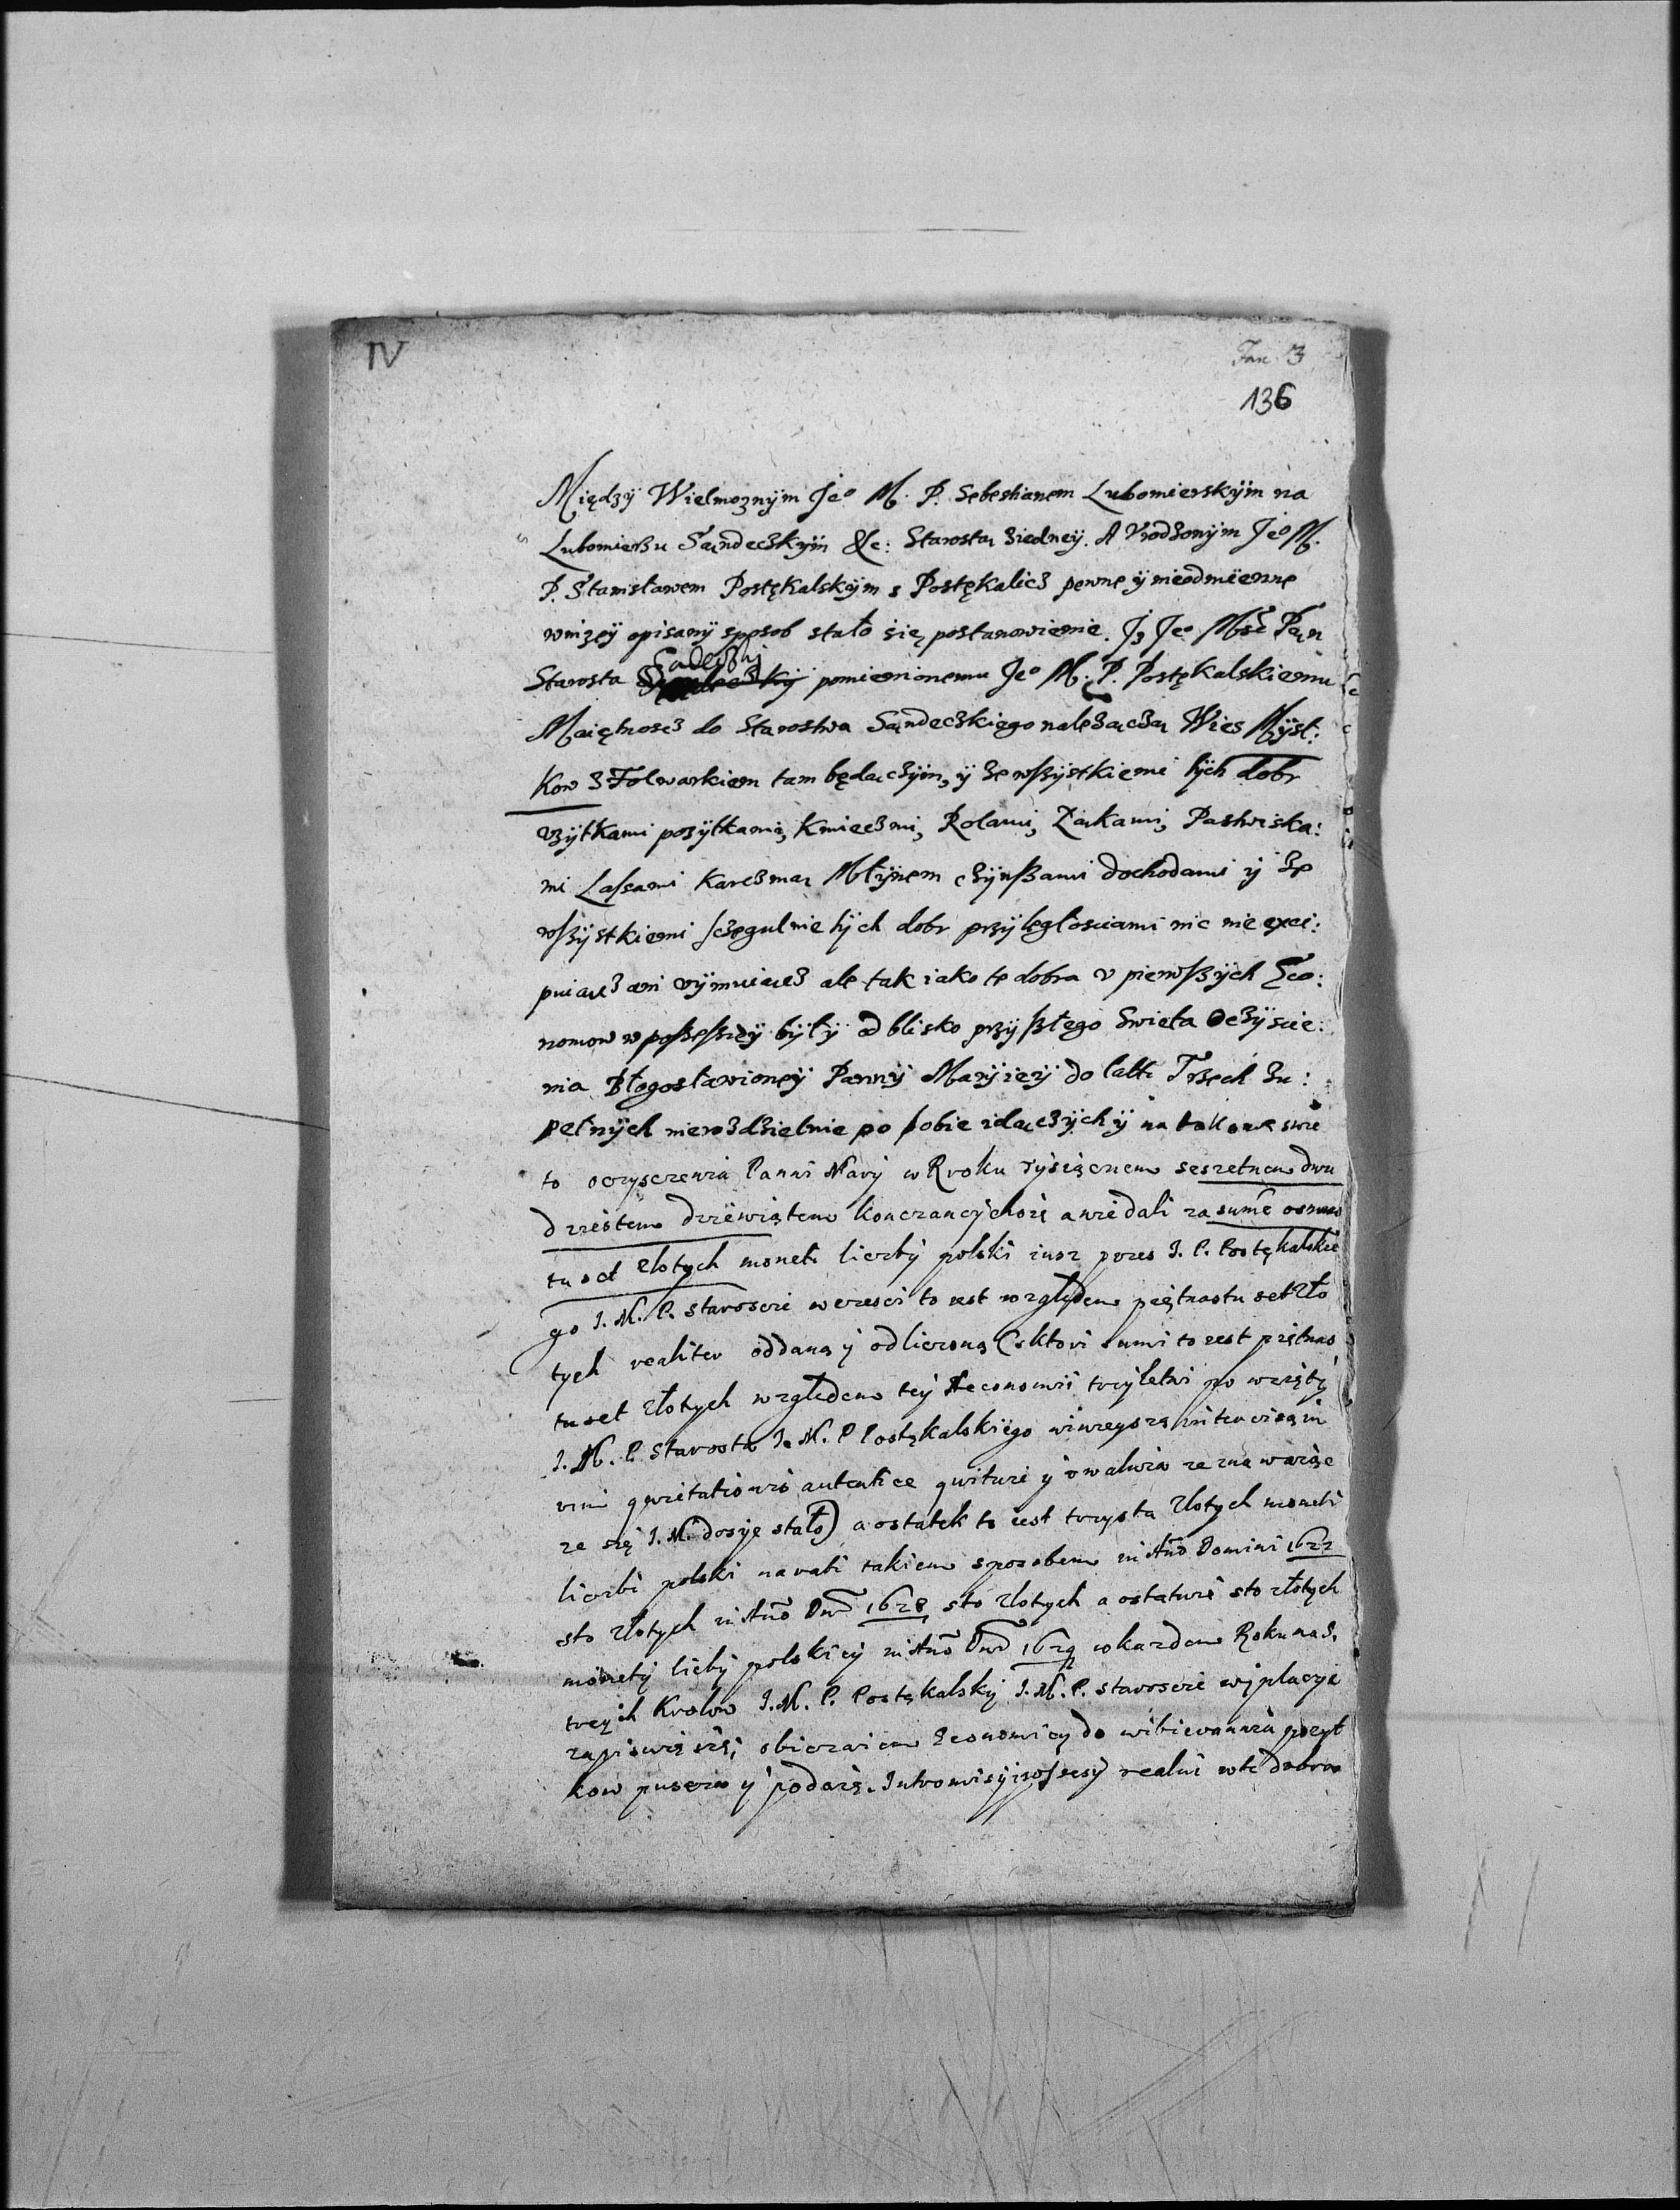 IV
Fan 3
136
Między Wielmoznÿm Jeo M. P. Sebestianem Lubomierskÿm na
Lubomierzu Sąndeczkÿm &c: Starostą ziedneÿ. A Vrodzonÿm Jeo M.
P. Stanisławem Postękalskÿm s Postękalicz pewne ÿ nieodmienne
wnizeÿ opisanÿ sposob stało się postanowienie. Jz Jeo Msc Pan
Starosta Sadeczki pomienionemu Jeo M. P. Postękalskiemu
Maiętnosc do Starostwa Sandeczkiego nalezącza Wies Mÿst:
kow z Folwarkiem tam będaczÿm, ÿ ze wszÿstkiemi tÿch dobr
vzÿtkami pozÿtkami, Kmieczmi, Rolami, Ląkami, Pastwiska:
mi Lassami Karczmą Młÿnem czÿnszami dochodami ÿ ze
wszÿstkiemi sczegulnie tÿch dobr przÿległosciami nic nie exci:
puiącz ani wÿmuiącz ale tak iako te dobra v pierwszÿch Eco:
nomow w possessieÿ bÿłÿ od blisko przÿszłego Swieta Oczÿscie:
nia Błogosławioneÿ Pannÿ Marÿieÿ do lath Trzech zu:
pełnÿch nierozdzielnie po sobie idączÿch ÿ na takowe swie
to oczysczenia Panni Mary w Rroku Tysiącnem seszetnem dwu
dziestem dziewiątem konczancychsię awiedali za sumę osmna
tu set złotych moneti liczbÿ polski iusz przes J. P. Postękalskie
go J. M. P. staroscie wczesci to iest względem piętnastu set zło
tych realiter oddaną y odliczoną (sktori sumi to iest piętnas
tu set złotych względem teÿ Aeconomii trzyletni po wziętÿ
J. M. P. Starosta J. M. P. Postękalskiego
quietationis autentice quituie y vwalnia zeznawaiąc
ze się J. M. dosyc stało) a ostatek to iest trzysta złotych moneti
liczbi polski na rati takiem sposobem in Ano Domini 1627
sto złotych in Ano Dni 1628 sto złotych a ostatnie sto złotych
monetÿ liczbÿ polskieÿ in Ano Dni 1629 wkazdem Roku na S.
trzech Krolow J. M. P. Postękalskÿ J. M. P. staroscie wÿplacyc
zapisuię się, obiecuiem Economiey do wibierania pozyt
kow pusczam y podaię. Intromisyi possesÿ realni w te dobra